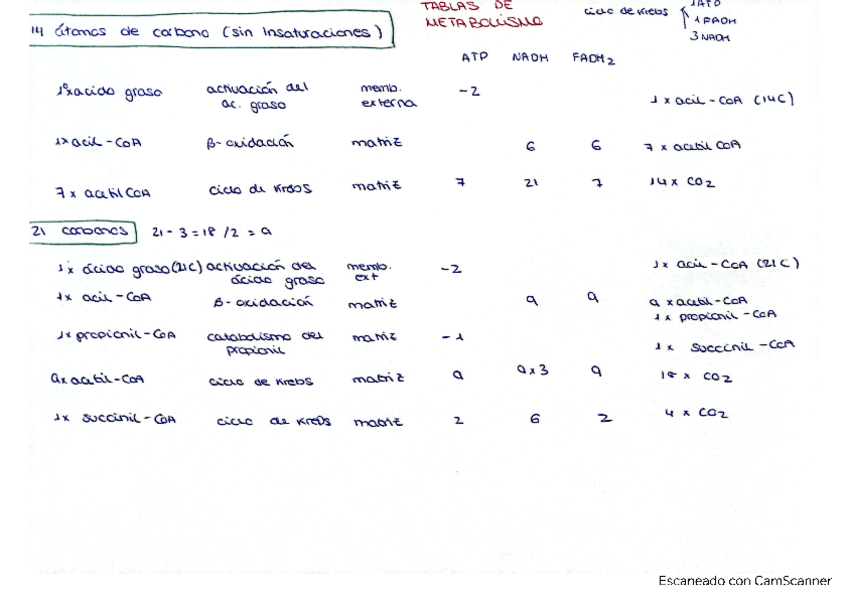 TABLAS DE METABOLISMO
ciclo de Krebs 1 ATP
1 FADH
3 NADH
14 átomos de carbono (sin insaturaciones)
ATP NADH FADH2
1x acido graso activación del ac. graso memb. externa -2 1 x acil-CoA (14C)
1x acil-CoA β-oxidación matriz 6 6 7 x acetil CoA
7 x acetil CoA ciclo de Krebs matriz 7 21 7 14 x CO2
21 carbonos 21-3=18/2=9
1x ácido graso (21C) activación del ácido graso memb. ext -2 1x acil-CoA (21C)
1x acil-CoA β-oxidación matriz 9 9 9 x acetil-CoA
1 x propionil-CoA
1x propionil-CoA catabolismo del propionil matriz -1 1x succinil-CoA
9x acetil-CoA ciclo de Krebs matriz 9 9x3 9 18 x CO2
1x succinil-CoA ciclo de Krebs matriz 2 6 2 4 x CO2
Escaneado con CamScanner